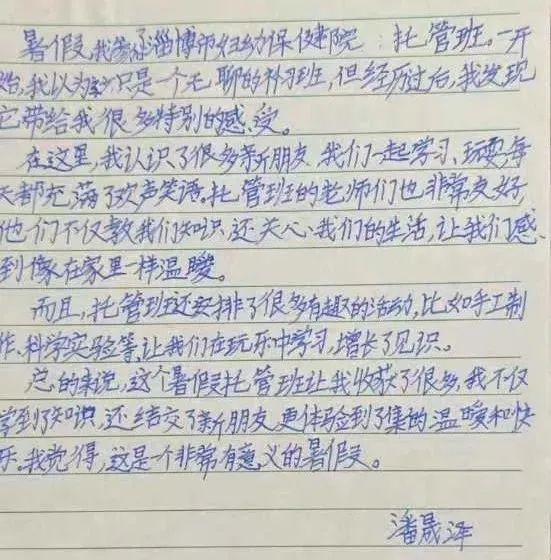 暑假,我参加淄博市妇幼保健院:托管班。一开
始,我以为这只是一个无聊的补习班,但经历过后,我发现
它带给我很多特别的感受。
在这里,我认识了很多新朋友,我们一起学习、玩耍,每
天都充满了欢声笑语。托管班的老师们也非常友好
他们不仅教我们知识,还关心我们的生活,让我们感
到像在家里一样温暖。
而且,托管班还安排了很多有趣的活动,比如手工制
作、科学实验等,让我们在玩乐中学习,增长了见识。
总的来说,这个暑假托管班让我收获了很多,我不仅
学到了知识,还结交了新朋友,更体验到了集的温暖和快
乐。我觉得,这是个非常有意义的暑假。
潘晟泽